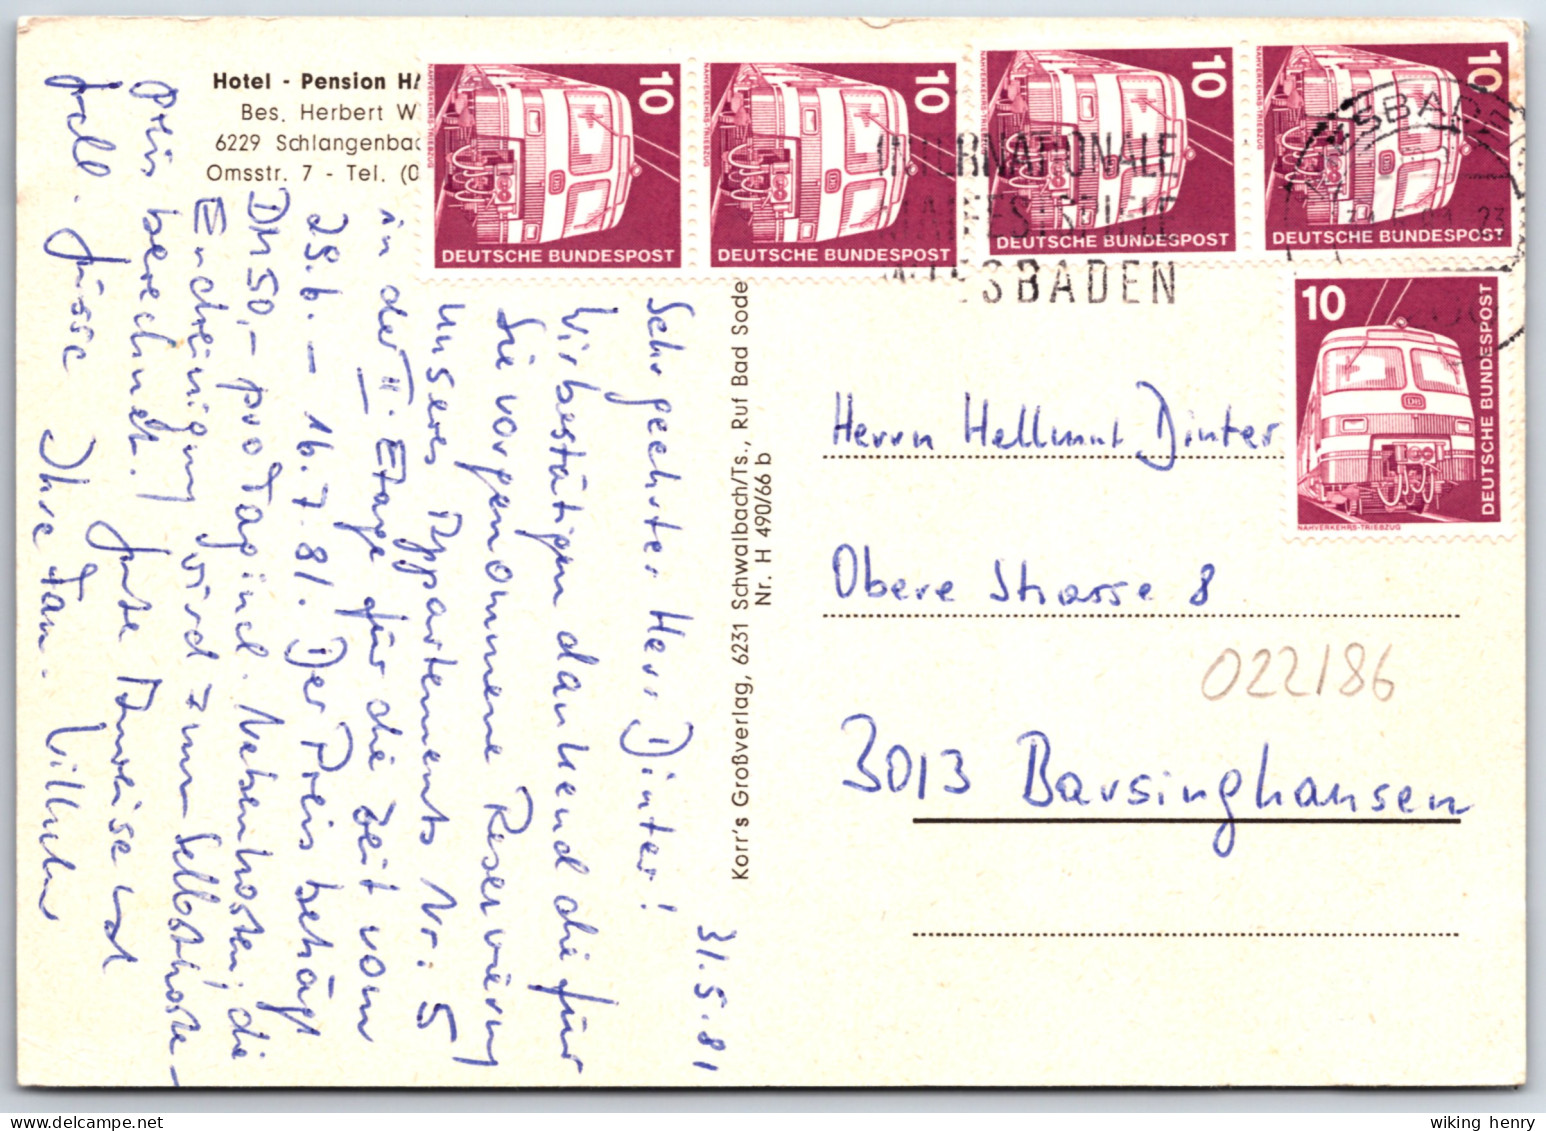 Hotel - Pension HA
Bes. Herbert W
6229 Schlangenbad
Omsstr. 7 - Tel. (0
10
NAHVERKEHRS-TRIEBZUG
DEUTSCHE BUNDESPOST
10
NAHVERKEHRS-TRIEBZUG
DEUTSCHE BUNDESPOST
10
NAHVERKEHRS-TRIEBZUG
DEUTSCHE BUNDESPOST
10
NAHVERKEHRS-TRIEBZUG
DEUTSCHE BUNDESPOST
10
NAHVERKEHRS-TRIEBZUG
DEUTSCHE BUNDESPOST
INTERNATIONALE
MAIFESTSPIELE
WIESBADEN
31.5.81
Sehr geehrter Herr Dinter!
Wir bestätigen dankend die für
Sie vorgenommene Reservierung
unseres Appartements Nr. 5
in der II. Etage für die Zeit vom
28.6. – 16.7.81. Der Preis beträgt
DM 50,- pro Tag incl. Nebenkosten, die
Endreinigung wird zum Selbstkoste-
preis berechnet. Gute Anreise und
Ihre Fam.
Korr's Großverlag, 6231 Schwalbach/Ts., Ruf Bad Sode
Nr. H 490/66 b
Herrn Hellmut Dinter
Obere Strasse 8
022/86
3013 Barsinghausen
wiking henry